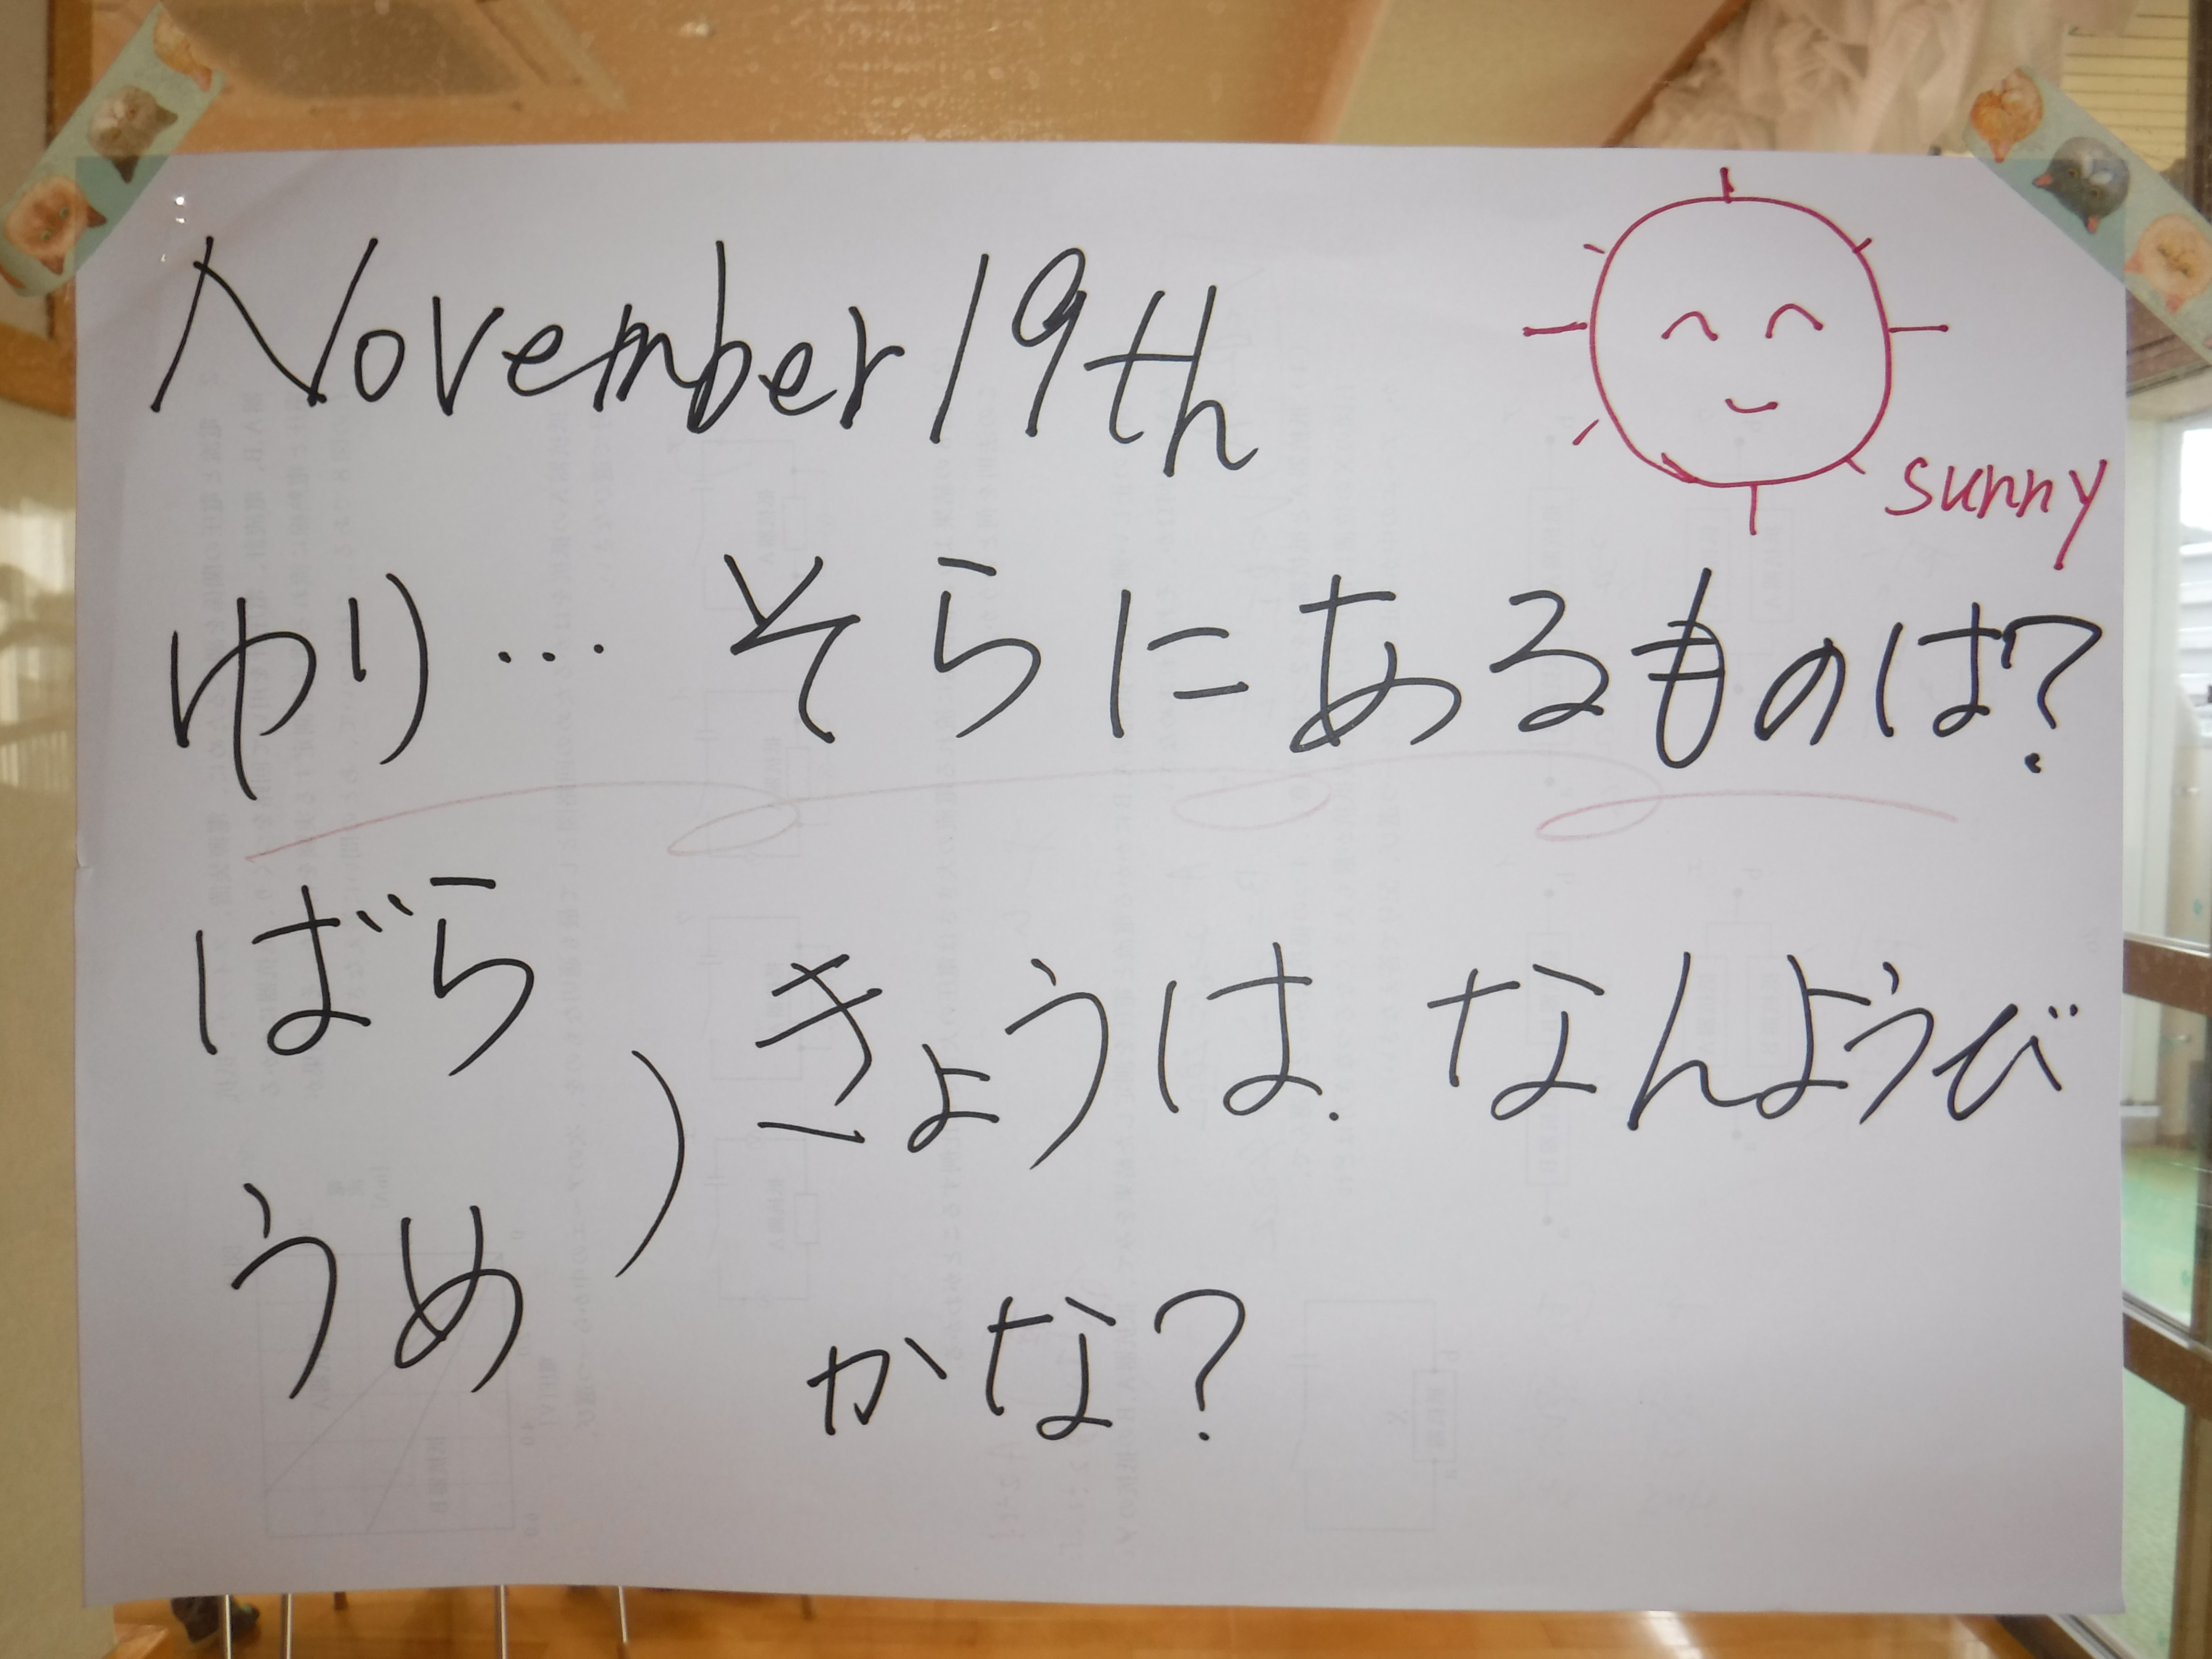 November 19th
sunny
ゆり… そらにあるものは?
ばら
うめ
) きょうは. なんようび
かな?